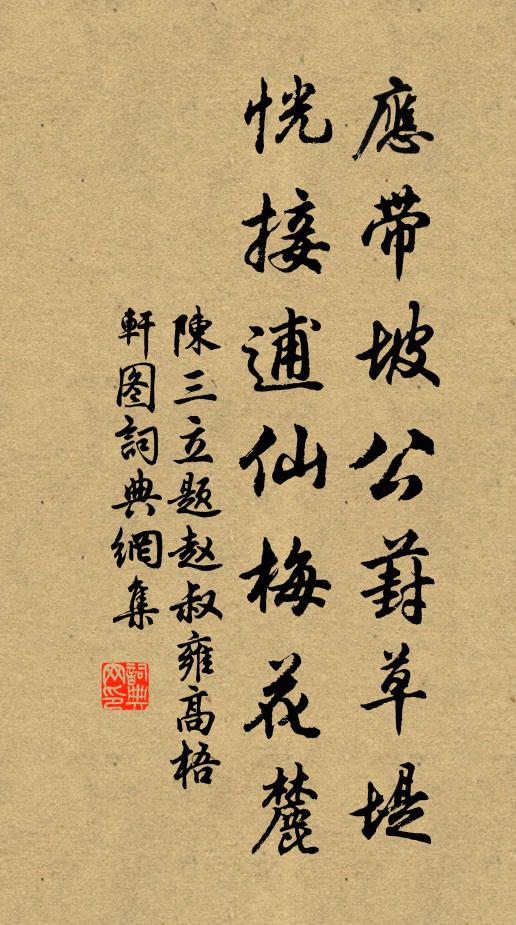 應帶坡公葑草堤
恍接逋仙梅花麓
陳三立題赵叔雍高梧
軒图詞典網集
詞典网印